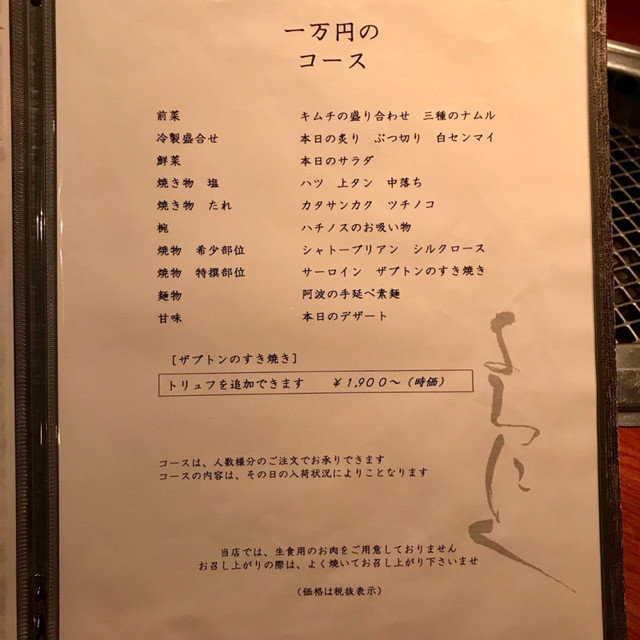 一万円の
コース
前菜 キムチの盛り合わせ 三種のナムル
冷製盛合せ 本日の炙り ぶつ切り 白センマイ
鮮菜 本日のサラダ
焼き物 塩 ハツ 上タン 中落ち
焼き物 たれ カタサンカク ツチノコ
椀 ハチノスのお吸い物
焼物 希少部位 シャトーブリアン シルクロース
焼物 特撰部位 サーロイン ザブトンのすき焼き
麺物 阿波の手延べ素麺
甘味 本日のデザート
[ザブトンのすき焼き]
トリュフを追加できます ￥1,900～(時価)
コースは、人数様分のご注文でお承りできます
コースの内容は、その日の入荷状況によりことなります
よろにく
当店では、生食用のお肉をご用意しておりません
お召し上がりの際は、よく焼いてお召し上がり下さいませ
(価格は税抜表示)